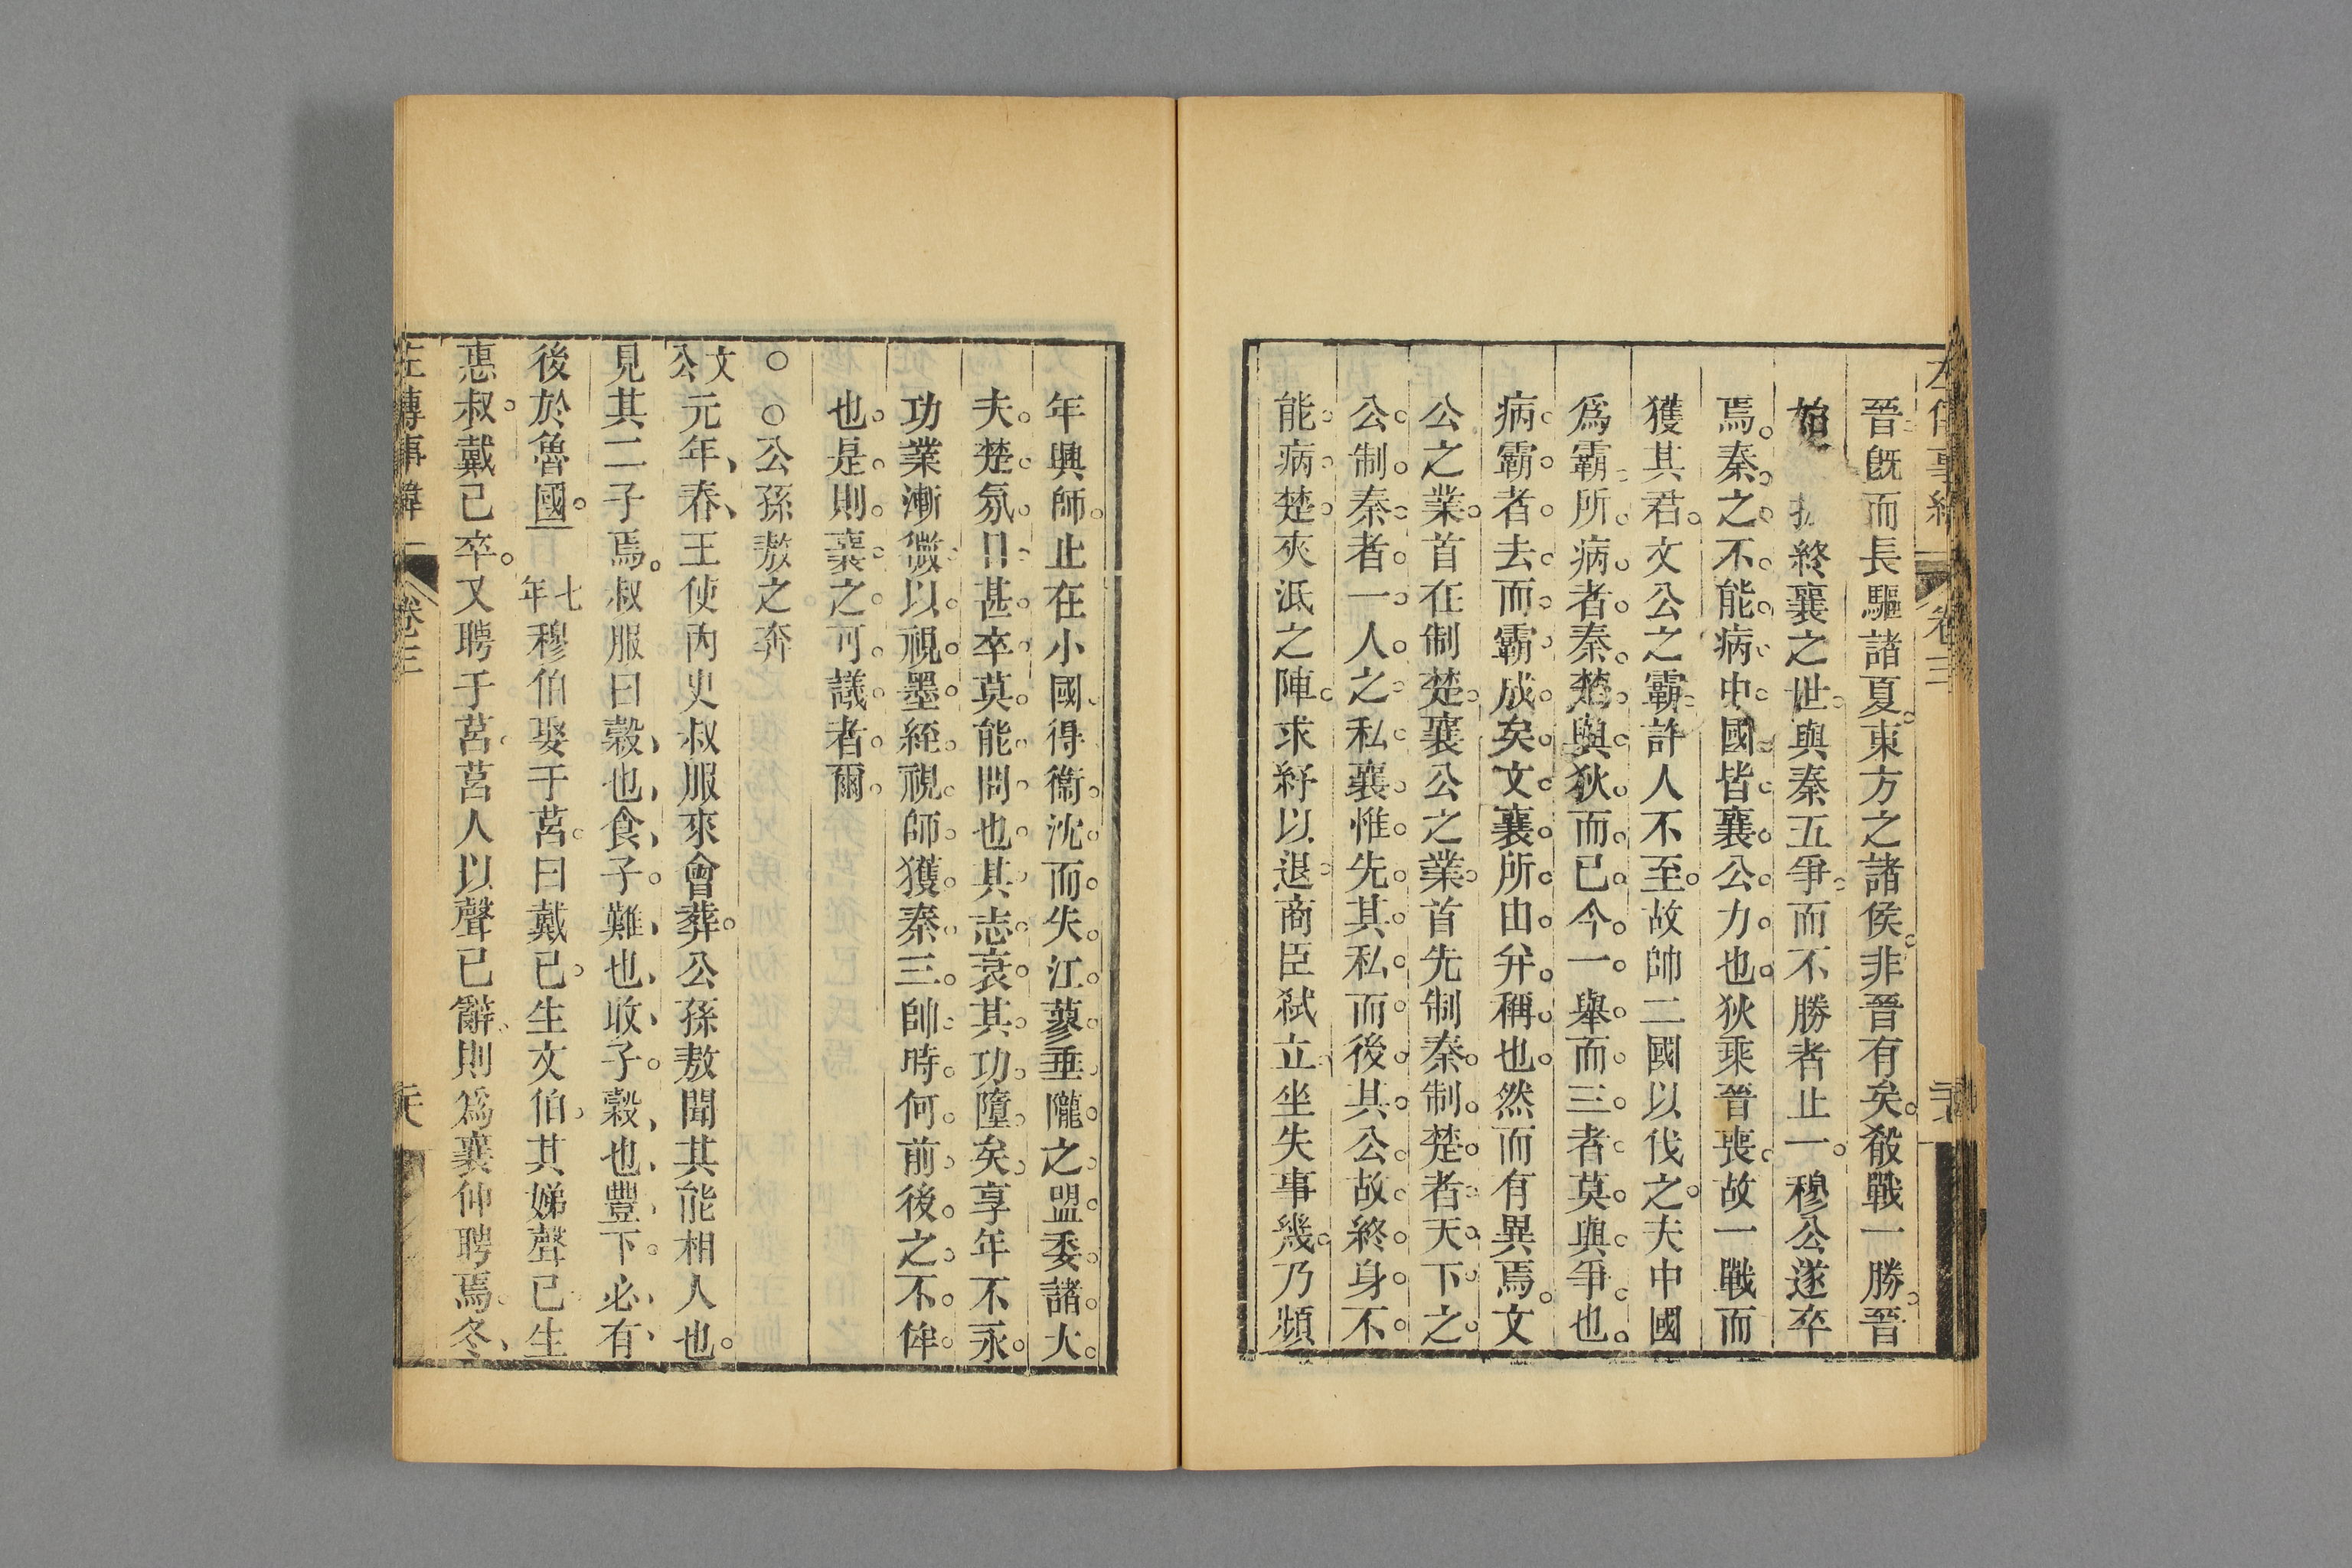 晉既而長驅諸夏東方之諸侯非晉有矣殽戰一勝晉
終襄之世與秦五爭而不勝者止一穆公遂卒
焉秦之不能病中國皆襄公力也狄乘晉喪故一戰而
獲其君文公之霸許人不至故帥二國以伐之夫中國
爲霸所病者秦楚與狄而已今一舉而三者莫與爭也
病霸者去而霸成矣文襄所由并稱也然而有異焉文
公之業首在制楚襄公之業首先制秦制楚者天下之
公制秦者一人之私襄惟先其私而後其公故終身不
能病楚夾泜之陣求紓以退商臣弒立坐失事幾乃頻
年興師止在小國得衞沈而失江蓼垂隴之盟委諸大
夫楚氛日甚卒莫能問也其志衰其功墮矣享年不永
功業漸微以視墨絰視師獲秦三帥時何前後之不侔
也是則襄之可議者爾
○○公孫敖之奔
文公元年春王使內史叔服來會葬公孫敖聞其能相人也
見其二子焉叔服曰穀也食子難也收子穀也豐下必有
後於魯國七年穆伯娶于莒曰戴己生文伯其娣聲己生
惠叔戴己卒又聘于莒莒人以聲己辭則爲襄仲聘焉冬
左傳事緯 卷三